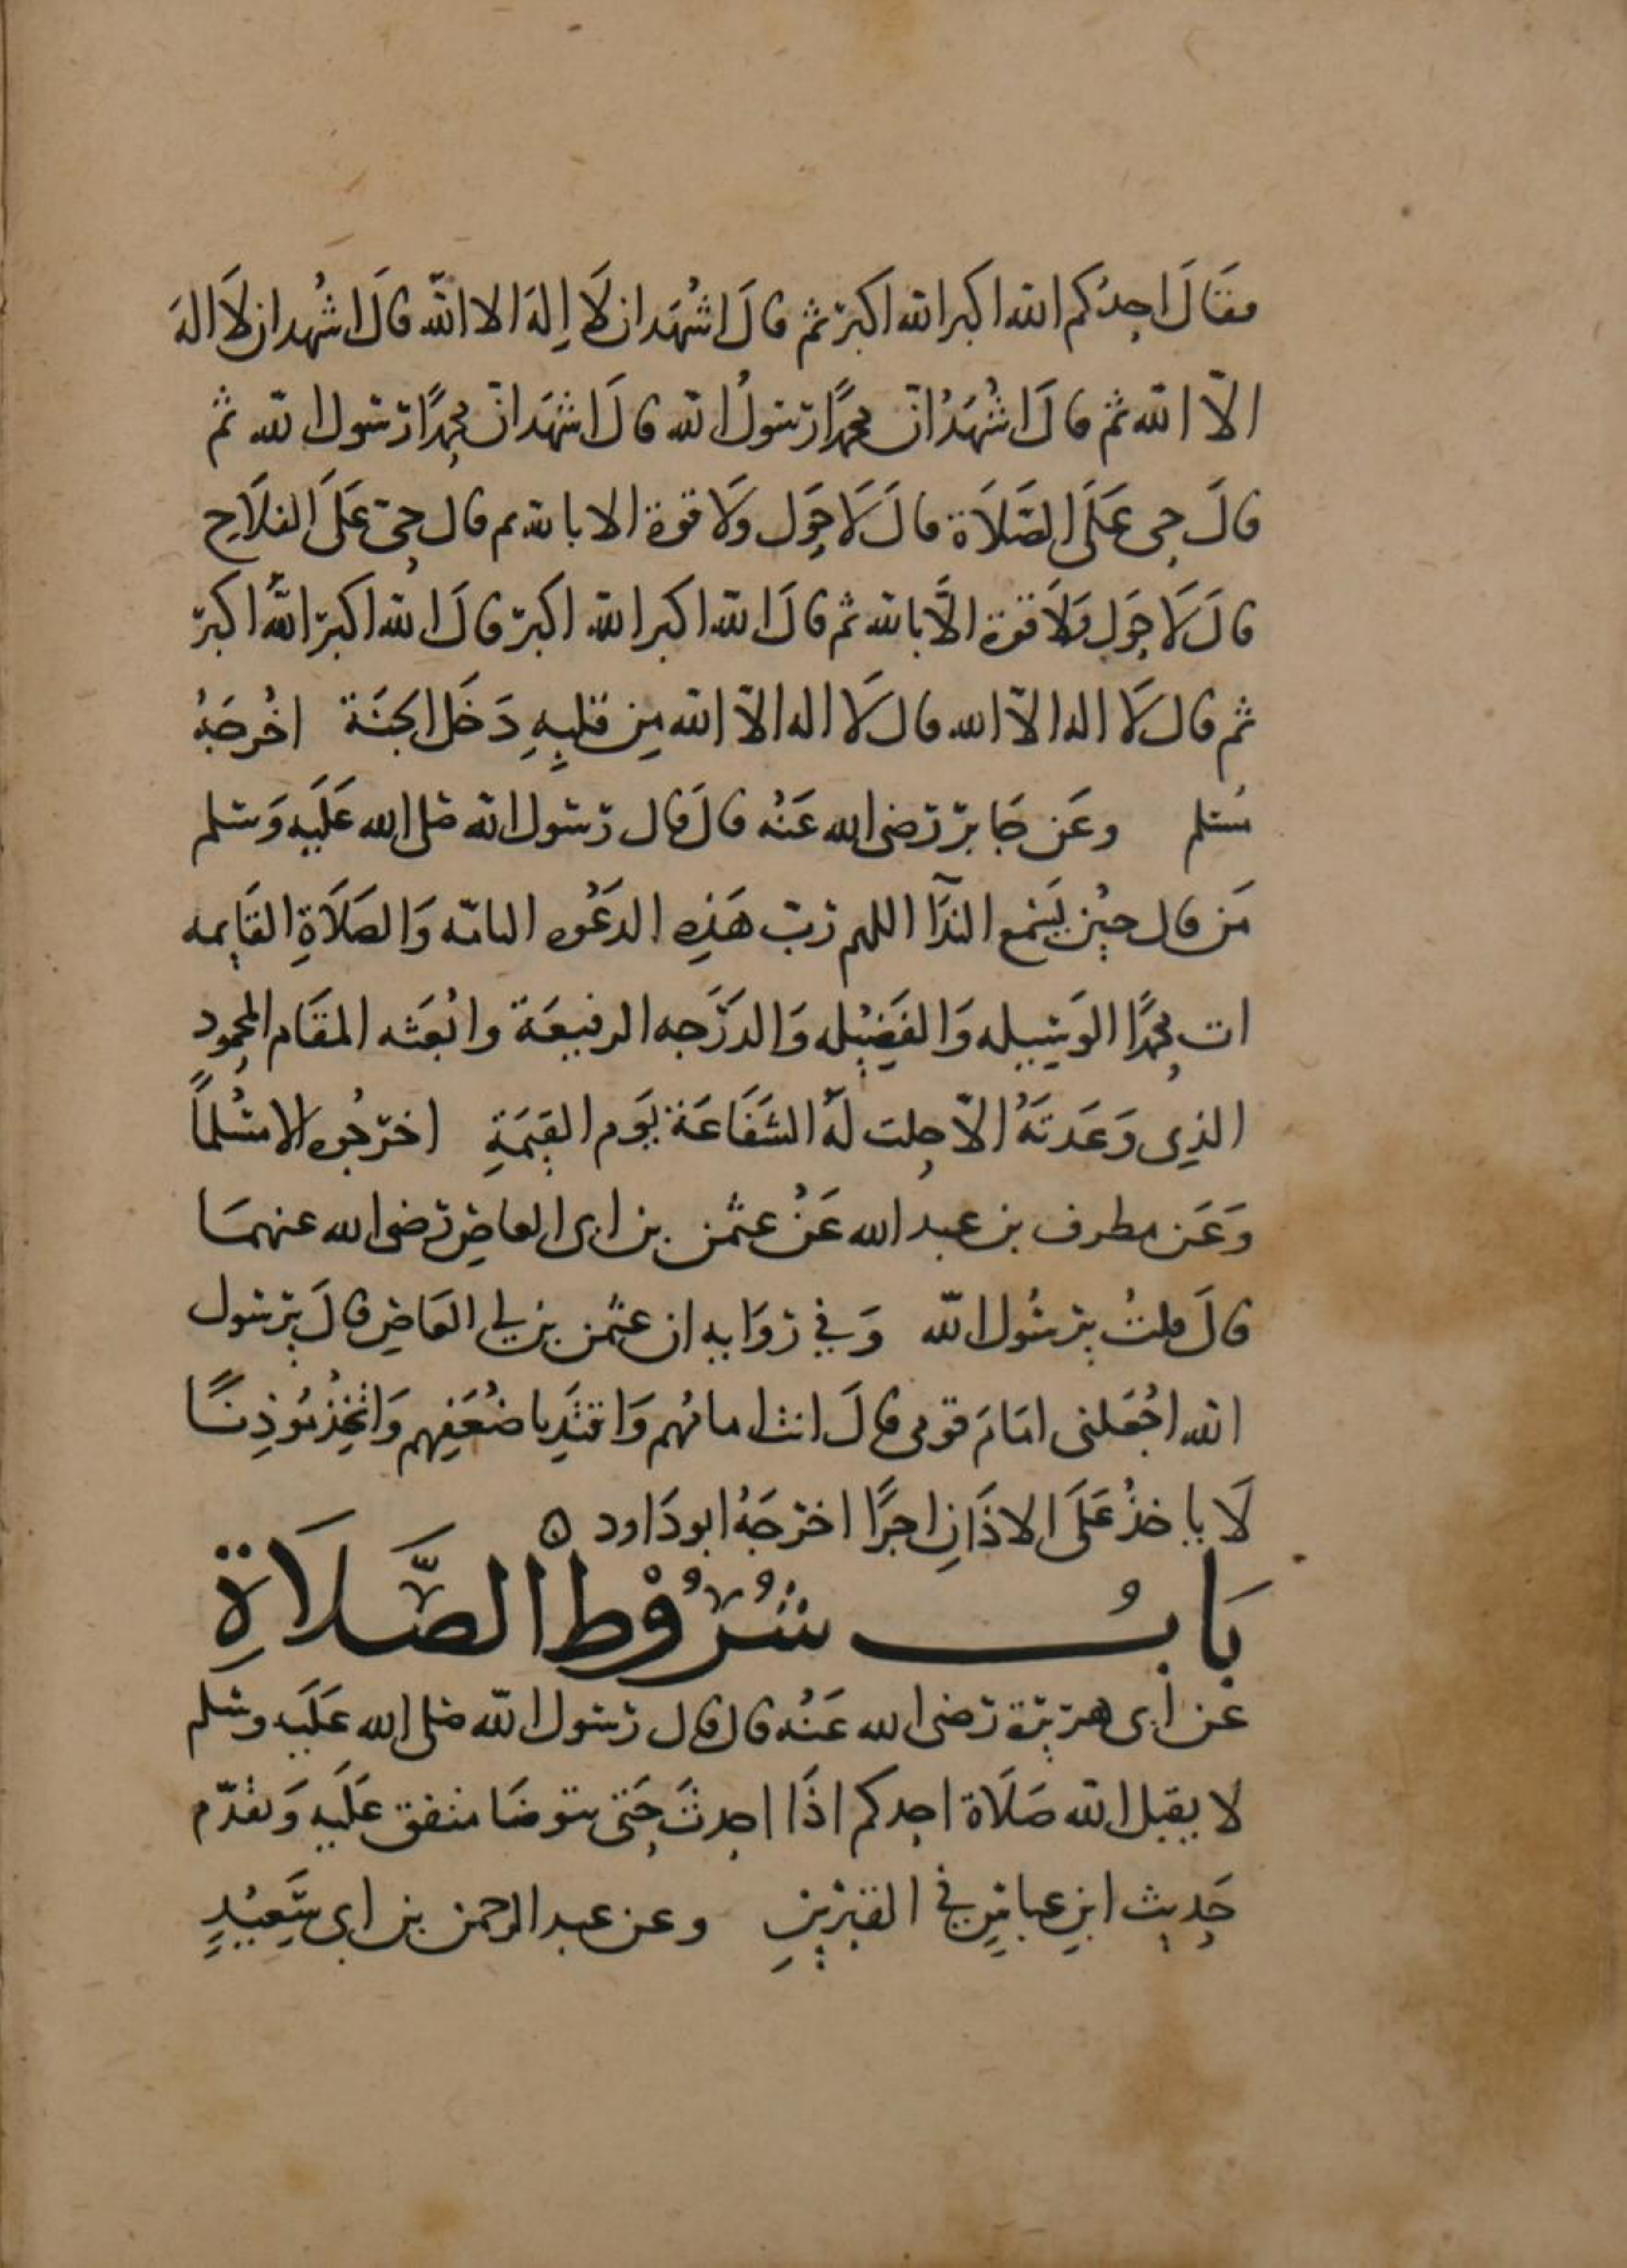 فقَالَ احِدُكم الله اكبر الله اكبرْ ثم قالَ اشْهَد ان لَا إِلهَ الا اللّه قالَ اشْهد ان لَا الهَ
الاّ الله ثم قالَ اشْهَدُ انّ محِمدًا رسَولُ الله قالَ اشهَد انّ محِمدًا رسَول الله ثم
قالَ حِى عَلَى الصَّلَاة قالَ لَا حِوَل ولَا قوة الا بالله ثم قال حِىّ عَلَى الفلَاحِ
قالَ لَا حِوَل ولَا قوة الاَّ بالله ثم قالَ الله اكبر الله اكبرْ قالَ الله اكبرْ اللهُ اكبرْ
ثم قال لَا اله الاّ الله قال لَا اله الاّ الله مِن قلبِهِ دَخَل الجَنَة اخْرجَهُ
مُسَلم وعَن جَابرْ رَضى الله عَنْه قالَ قال رَسَول الله صَلى الله عَلَيه وَسَلم
مَن قال حِيْن يَسْمع الندَآ اللهم رَبّ هَذِهِ الدعَوْه التامّه وَالصَلَاةِ القَايمه
ات محِمدًا الوَسِيله وَالفَضِيْله وَالدَرَجه الرفيعَة وابْعَثه المقَام المحِمود
الذِى وَعَدتَهُ الاّ حِلت لَهُ الشَفَاعَة يَوم القِيَمَةِ اخرَجُوه الا مُسْلماً
وَعَن مطرف بن عبد الله عَنْ عثمن بن ابى العاصِ رَضى الله عنهمَا
قالَ قلتُ يرسُول اللّه وَفي رَوَايه ان عثمن بن ابي العَاصِ قالَ يرسَول
الله اجْعَلنى امَامَ قومى قالَ انت امامُهم وَاقتَدِ باضْعَفِهم وَاتْخِذْ مُوذِنًا
لَا ياخذُ عَلَى الاذَانِ اجرًا اخرجَهُ ابودَاود ۞
بَابُ شُرُوْط الصَّلَاةِ
عَن ابى هرَيرَة رَضى الله عَنْه قال قال رَسَول اللّه صَلى الله عَلَيه وسَلم
لا يقبل الله صَلَاة احِدكم اذَا احِدثَ حِتَى يتوضَا متفق عَلَيه وَتقْدّم
حَدِيث ابنِ عباسِ في القبْرينِ وعن عبد الرحمن بن ابى سَعِيْدٍ